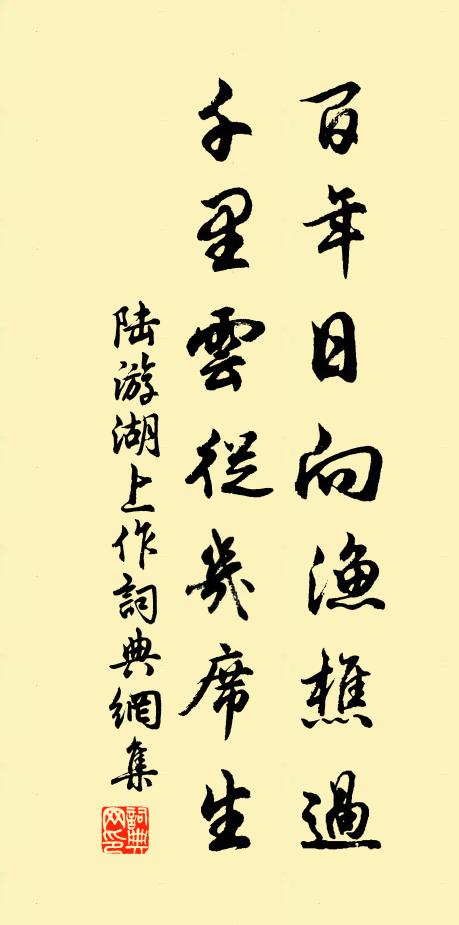 百年日向漁樵過
千里雲從几席生
陸游湖上作詞典網集
詞典网印